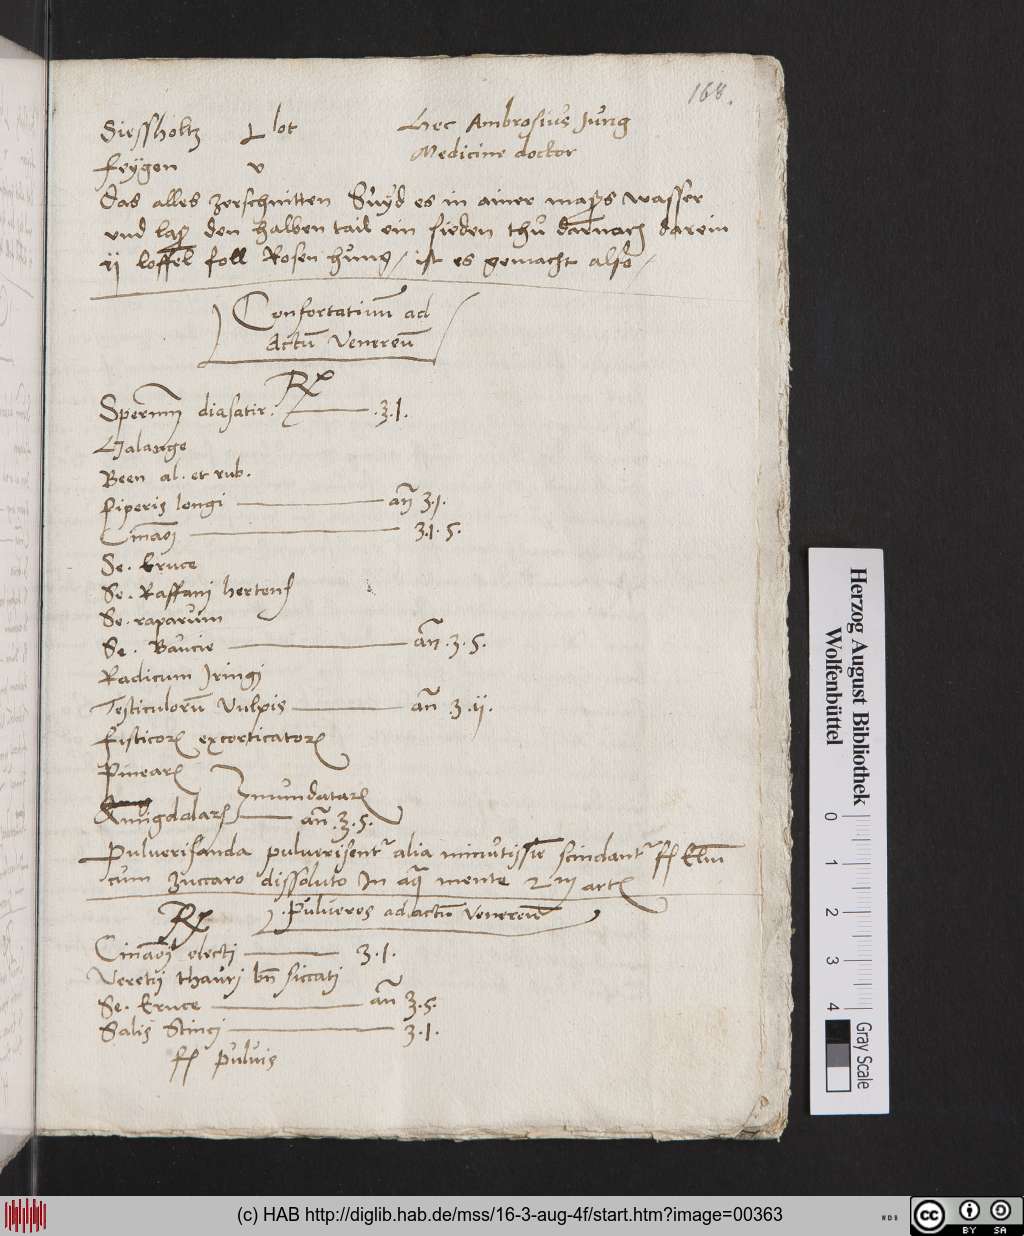 168.
Siessholtz 1 lot
feÿgen v
Hec Ambrosius Jung
Medicine doctor
Das alles zerschnitten Suÿd es in ainer mass wasser
vnd lass den halben tail ein sieden thu darnach darein
ij loffel foll Rosen hung / ist es gemacht also /
Confortatiuum ad
Actū Venereū
Rx
diasatir. ʒ.1.
Galange
Been al. et rub.
Piperis longi an̄ ʒ.j.
ʒ.1.S.
Se. Eruce
Se. Raffanj
Se. raparum
Se. Baucie an̄.ʒ.S.
Radicum Jringj
Testiculorū Vulpis an̄.ʒ.ij.
fisticoꝝ excorticatoꝝ
Pineaꝝ
mundataꝝ
Amigdalaꝝ an̄.ʒ.S.
Puluerisanda puluerisentꝛ alia scindantꝛ
cum zuccaro dissoluto In aq̄ mente
Rx
.Pulueres ad actū Venereū
electj ʒ.1.
thaurj bn̄ siccatj
Se. Eruce an̄ ʒ.S.
Salis Stincj ʒ.1.
ff puluis
Herzog August Bibliothek
Wolfenbüttel
0 1 2 3 4
Gray Scale
(c) HAB http://diglib.hab.de/mss/16-3-aug-4f/start.htm?image=00363
WDB
cc BY SA